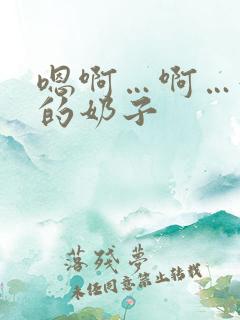 嗯啊…啊…
的奶子
落残梦
未经同意禁止转载